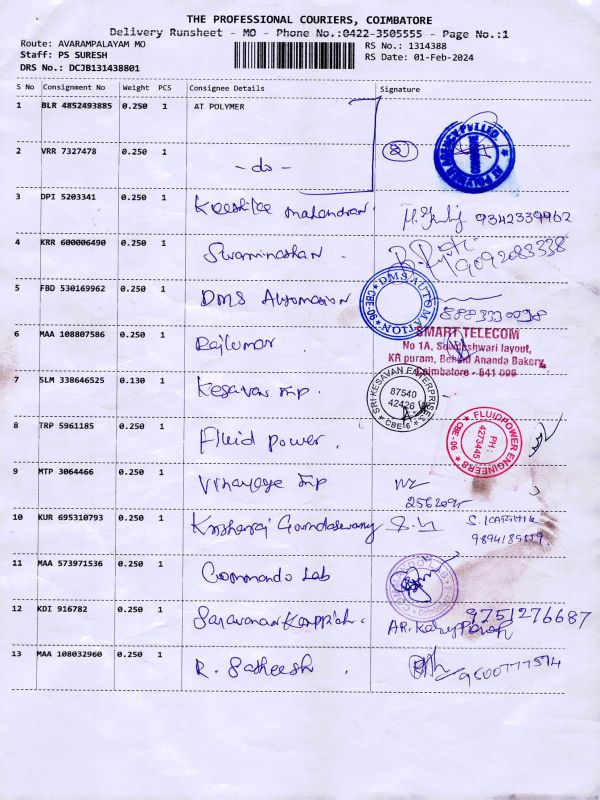 THE PROFESSIONAL COURIERS, COIMBATORE
Delivery Runsheet - MO - Phone No.:0422-3505555 - Page No.:1
Route: AVARAMPALAYAM MO
RS No.: 1314388
Staff: PS SURESH
RS Date: 01-Feb-2024
DRS No.: DCJB131438801
S No Consignment No Weight PCS Consignee Details Signature
1 BLR 4852493885 0.250 1 AT POLYMER
2 VRR 7327478 0.250 1 - do -
3 DPI 5203341 0.250 1 Mahendran 9342339962
4 KRR 600006490 0.250 1 Swaminathan 9092083338
5 FBD 530169962 0.250 1 DMS Automation
DMS AUTOMATION
6 MAA 108807586 0.250 1 Rajkumar
SMART TELECOM
No 1A, layout,
KR puram, Behind Ananda Bakery,
Coimbatore - 641 006
7 SLM 338646525 0.130 1 Kesavan Enp.
SRI KESAVAN ENTERPRISES
87540
42426
CBE-6
8 TRP 5961185 0.250 1 Fluid power.
FLUIDPOWER ENGINEERS
PH :
4273445
CBE - 06
9 MTP 3064466 0.250 1 Vinayaga Enp
10 KUR 695310793 0.250 1 Krishnaraj Govindaswamy S. KARTHIK
11 MAA 573971536 0.250 1 Commando Lab
12 KDI 916782 0.250 1 Saravanan Karppiah. 9751276687
AR. Karuppaiah
13 MAA 108032960 0.250 1 R. Satheesh. 9500777574